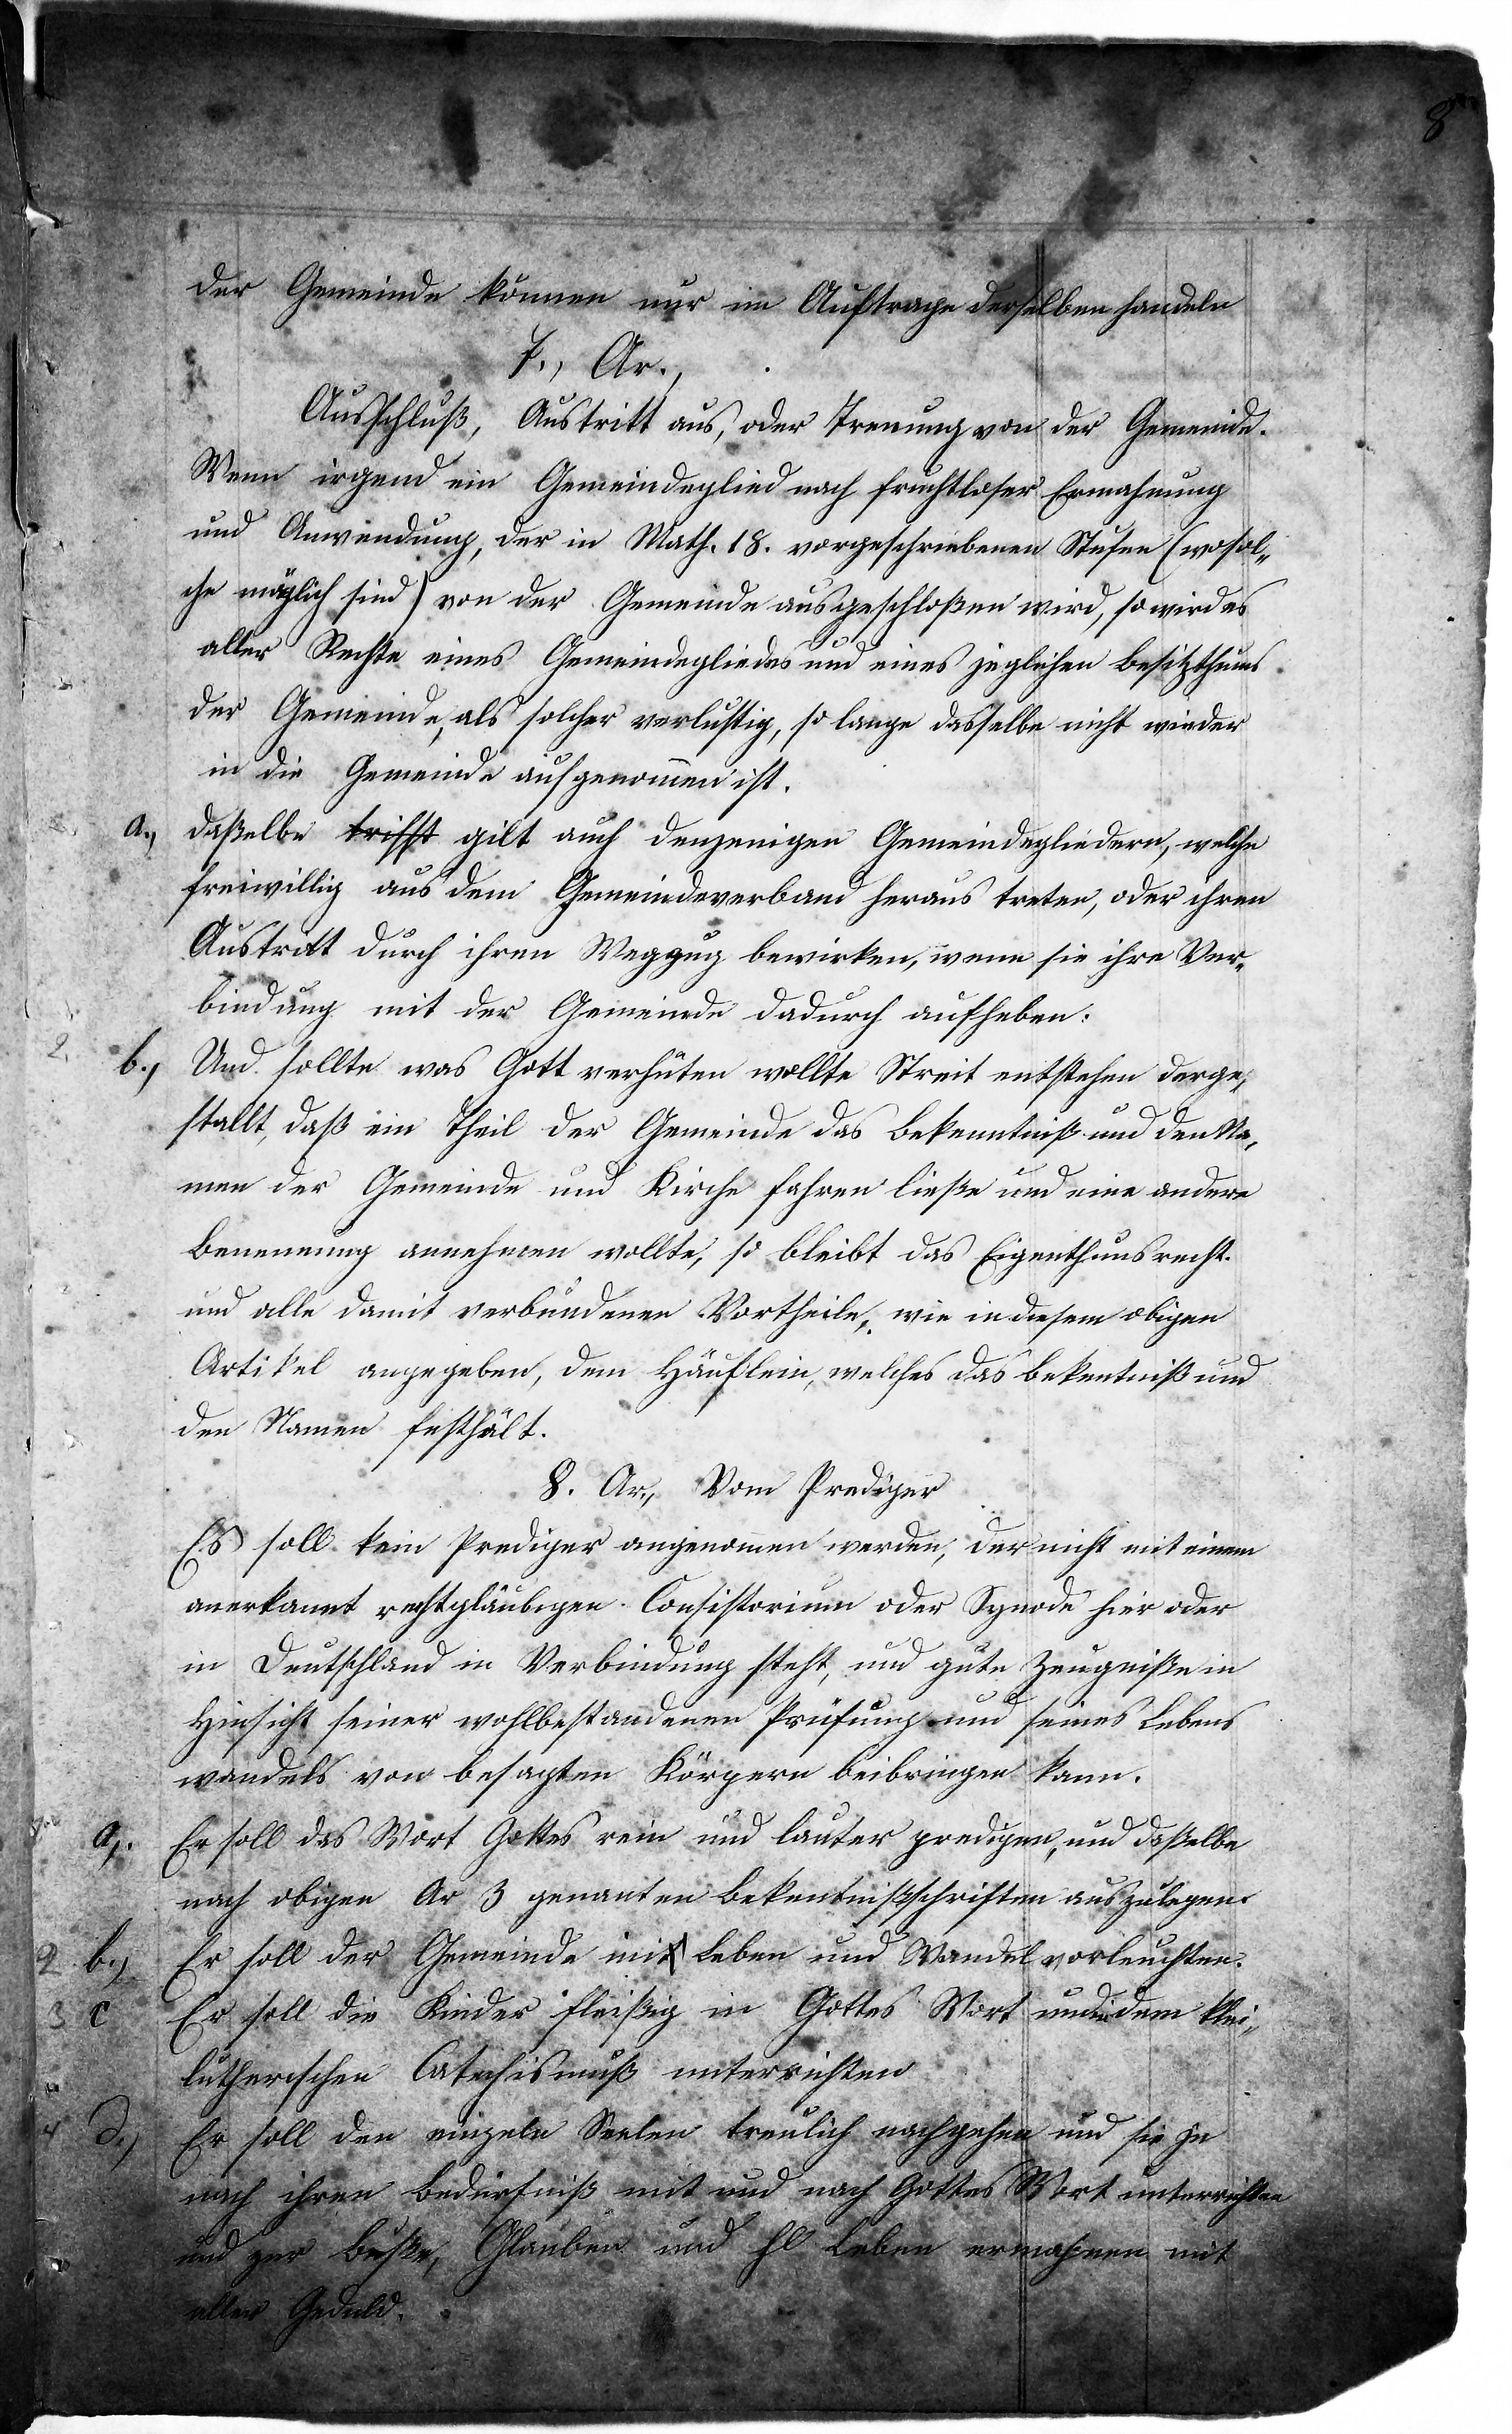 8
der Gemeinde können nur im Auftrage derselben handeln
7., Ar.,
Ausschluß, Austritt aus, oder Trenung von der Gemeinde.
Wenn irgend ein Gemeindeglied nach fruchtloser Ermahnung
und Anwendung, der in Math. 18. vorgeschriebenen Stufen (wo sol„
che möglich sind) von der Gemeinde ausgeschloßen wird, so wird es
aller Rechte eines Gemeindegliedes und eines jeglichen Besitzthums
der Gemeinde, als solcher verlustig, so lange dasselbe nicht wieder
in die Gemeinde aufgenom̄en ist.
a., daßelbe trifft gilt auch denjenigen Gemeindegliedern, welche
freiwillig aus dem Gemeindeverband heraus treten, oder ihren
Austritt durch ihren Wegzug bewirken, wenn sie ihre Ver„
bindung mit der Gemeinde dadurch aufheben.
2. b., Und sollte was Gott verhüten wollte Streit entstehen derge„
stallt, daß ein Theil der Gemeinde das Bekenntniß und den Na„
men der Gemeinde und Kirche fahren ließe und eine andere
Benennung annehmen wollte, so bleibt das Eigenthumsrecht
und alle damit verbundenen Vortheile, wie in diesem obigen
Artikel angegeben, dem Häuflein, welches das Bekentniß und
den Namen festhält.
8. Ar., Vom Prediger
Es soll kein Prediger angenom̄en werden, der nicht mit einem
anerkannt rechtgläubigen Consistorium oder Synode hier oder
in Deutschland in Verbindung steht, und gute Zeugniße in
Hinsicht seiner wohlbestandenen Prüfung und seines Lebens
wandels von besagten Körpern beibringen kann.
a., Er soll das Wort Gottes rein und lauter predigen, und daßelbe
nach obigen Ar 3 genanten Bekentnißschriften auszulegen.
2 b., Er soll der Gemeinde mit Leben und Wandel vorleuchten.
3 c Er soll die Kinder fleißig in Gottes Wort und in dem klei„
lutherischen Catechismuß unterrichten
4 d., Er soll den einzeln Seelen treulich nachgehen und sie je
nach ihren Bedürfniß mit und nach Gottes Wort unterrichten
und zur Buße, Glauben und hl Leben ermahnen mit
aller Geduld.